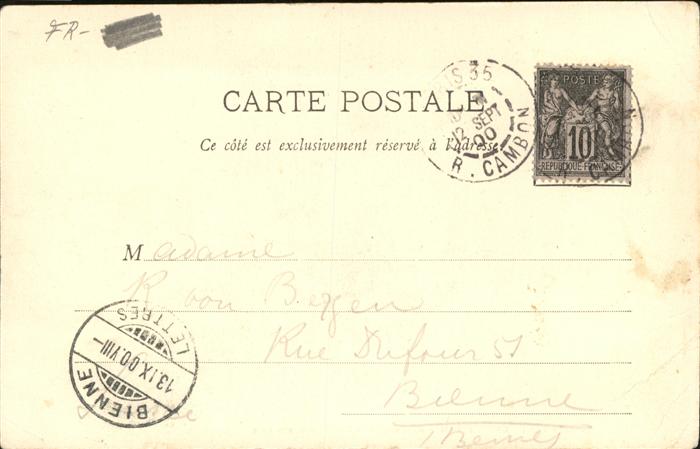 FR-
CARTE POSTALE
Ce côté est exclusivement réservé à l'adresse.
PARIS 35
12 SEPT
00
R. CAMBON
POSTE
10
REPUBLIQUE FRANÇAISE
Madame
R von Bergen
Rue Dufour 51
Bienne
BIENNE
13.IX.00.VIII-
LETTRES